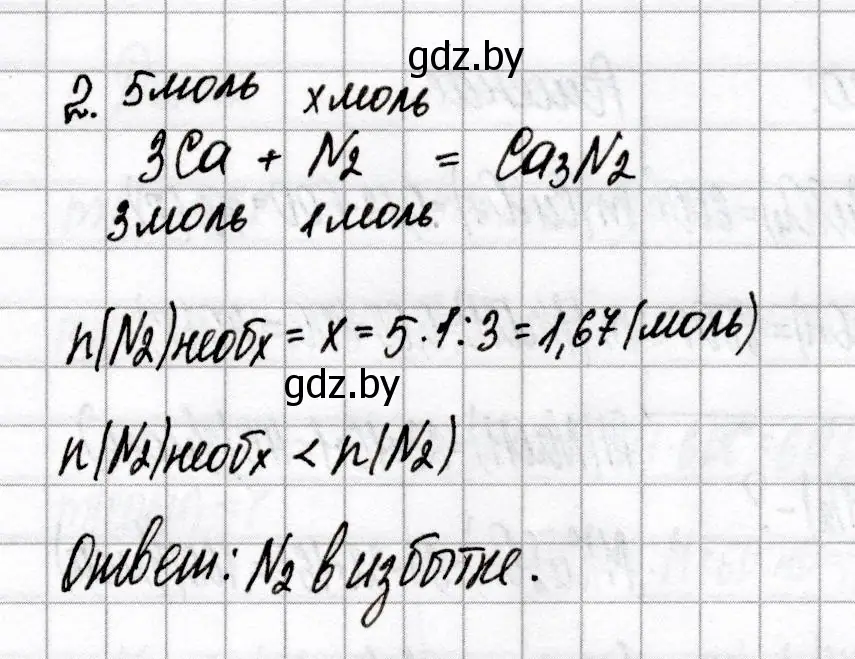 gdz.by
2. 5моль хмоль
3Ca + N2 = Ca3N2
3моль 1моль.
n(N2)необх = х = 5·1:3 = 1,67 (моль)
gdz.by
n(N2)необх < n(N2)
Ответ: N2 в избытке.